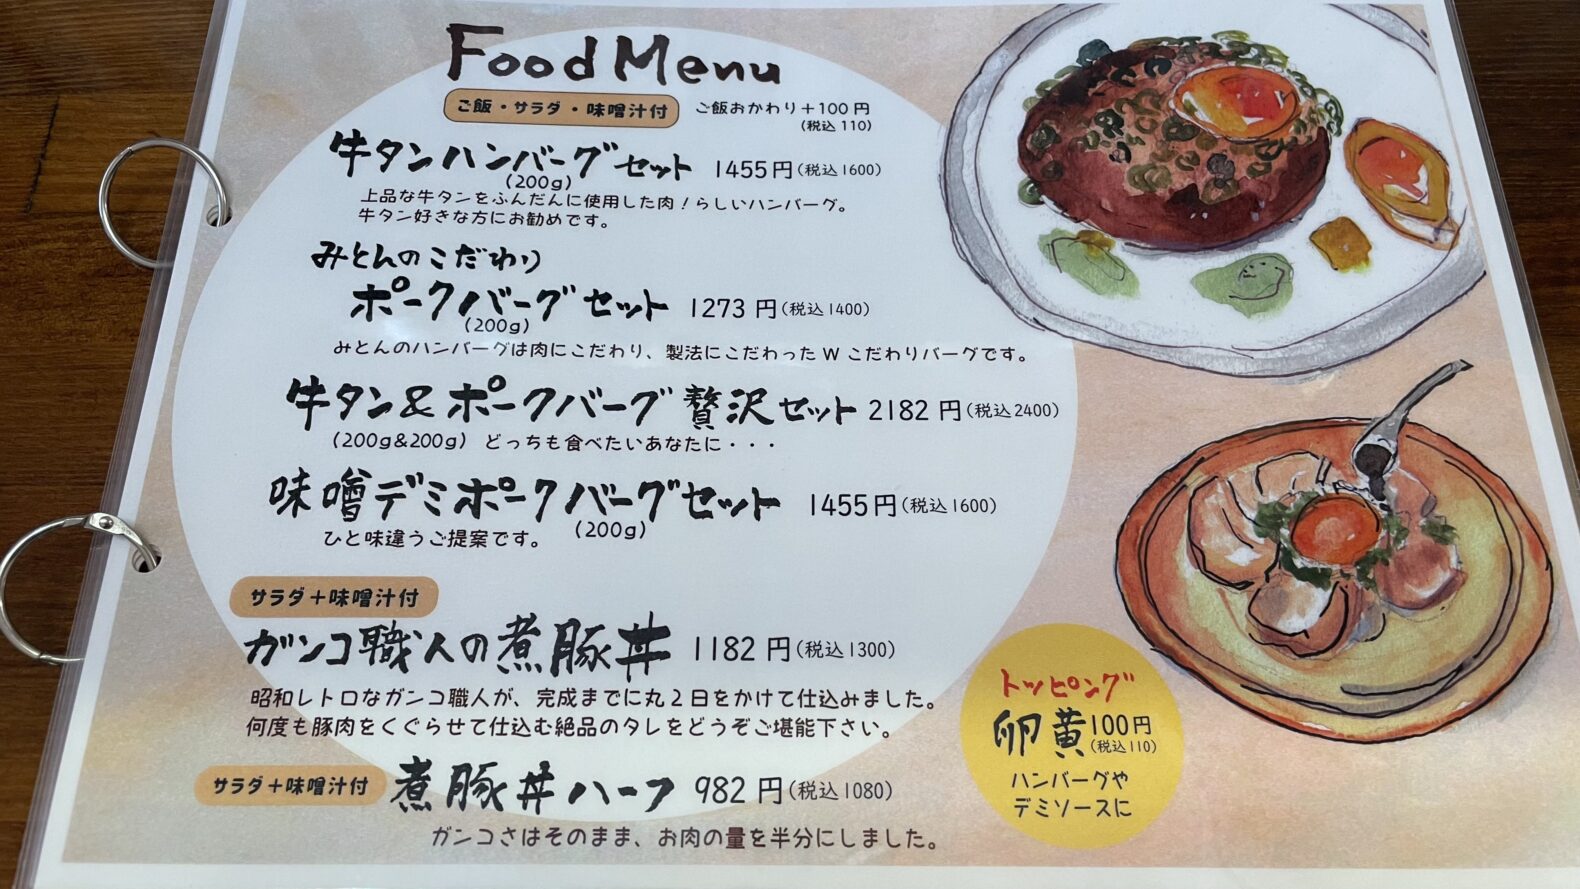 Food Menu
ご飯・サラダ・味噌汁付 ご飯おかわり+100円
(税込110)
牛タンハンバーグセット 1455円(税込1600)
(200g)
上品な牛タンをふんだんに使用した肉!らしいハンバーグ。
牛タン好きな方にお勧めです。
みとんのこだわり
ポークバーグセット 1273円(税込1400)
(200g)
みとんのハンバーグは肉にこだわり、製法にこだわったWこだわりバーグです。
牛タン&ポークバーグ贅沢セット 2182円(税込2400)
(200g&200g) どっちも食べたいあなたに・・・
味噌デミポークバーグセット 1455円(税込1600)
ひと味違うご提案です。 (200g)
サラダ+味噌汁付
ガンコ職人の煮豚丼 1182円(税込1300)
昭和レトロなガンコ職人が、完成までに丸2日をかけて仕込みました。
何度も豚肉をくぐらせて仕込む絶品のタレをどうぞご堪能下さい。
サラダ+味噌汁付 煮豚丼ハーフ 982円(税込1080)
ガンコさはそのまま、お肉の量を半分にしました。
トッピング
卵黄100円
(税込110)
ハンバーグや
デミソースに